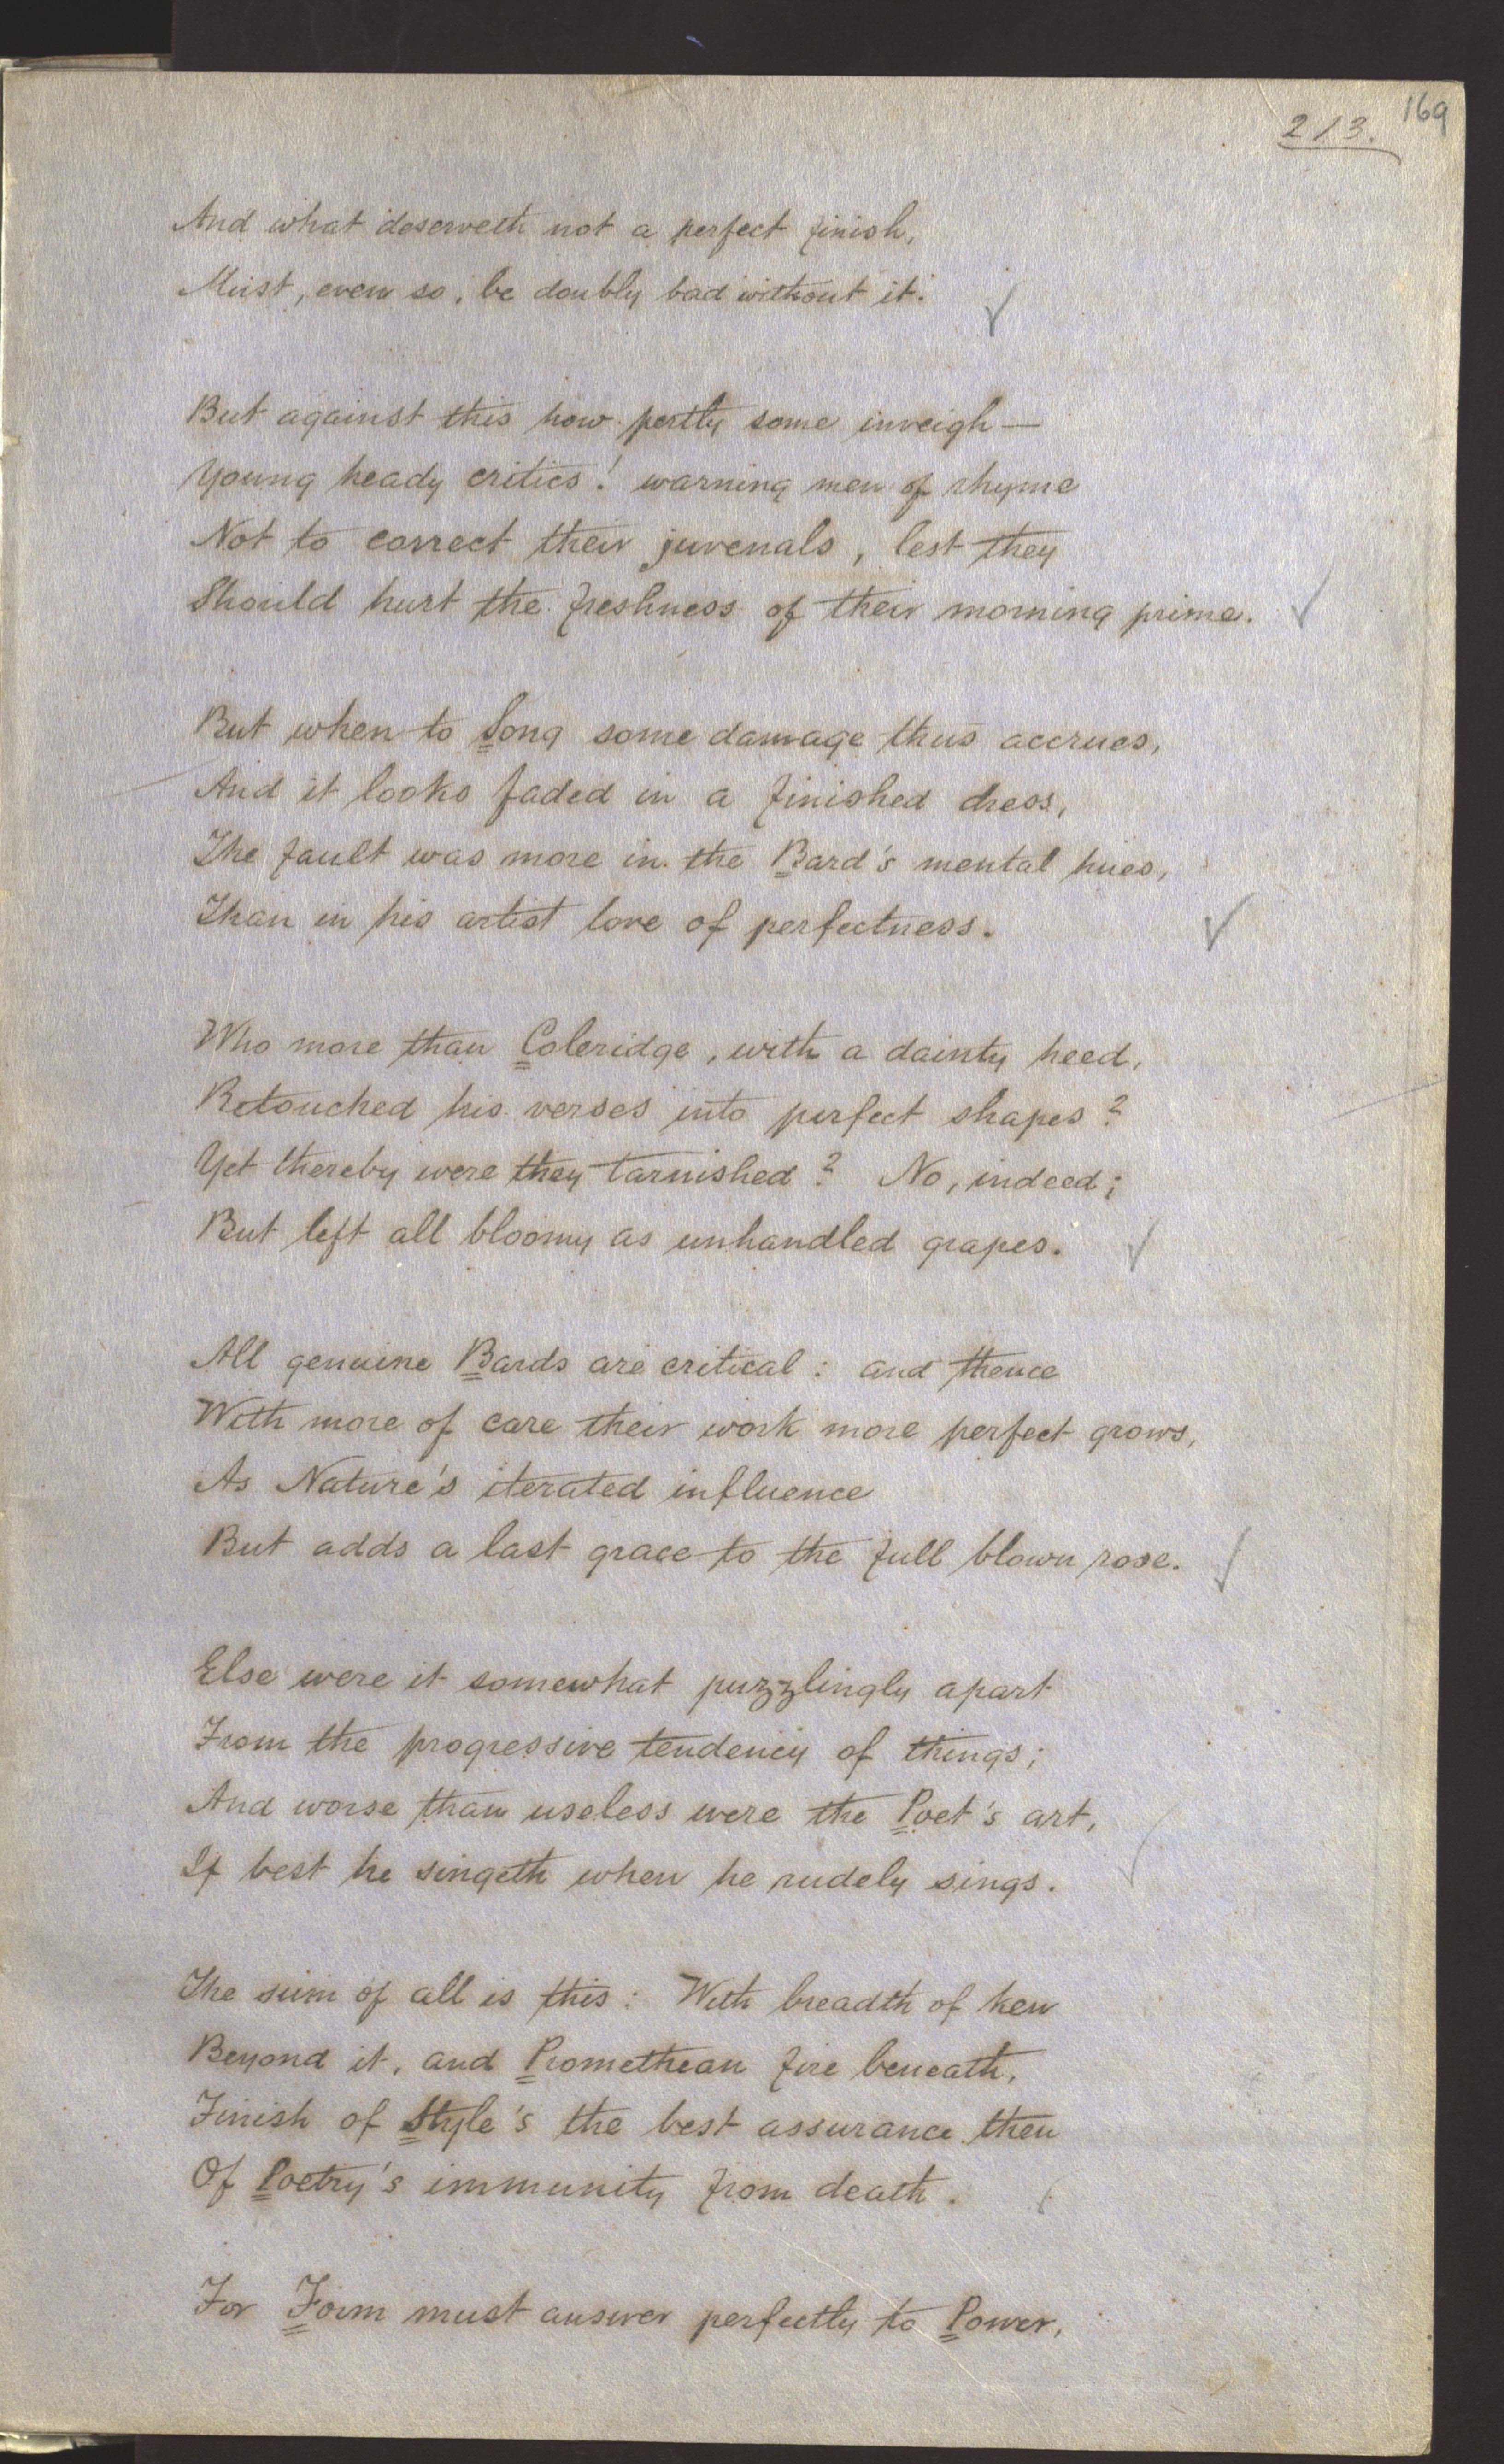 169
213.
And what deserveth not a perfect finish,
Must, even so, be doubly bad without it.
But against this how pertly some inveigh —
Young heady critics! warning men of rhyme
Not to correct their juvenals, lest they
Should hurt the freshness of their morning prime.
But when to Song some damage thus accrues,
And it looks faded in a finished dress,
The fault was more in the Bard's mental hues,
Than in his artist love of perfectness.
Who more than Coleridge, with a dainty heed,
Retouched his verses into perfect shapes?
Yet thereby were they tarnished? No, indeed;
But left all bloomy as unhandled grapes.
All genuine Bards are critical: and thence
With more of care their work more perfect grows,
As Nature's iterated influence
But adds a last grace to the full blown rose.
Else were it somewhat puzzlingly apart
From the progressive tendency of things;
And worse than useless were the Poet's art,
If best he singeth when he rudely sings.
The sum of all is this: With breadth of ken
Beyond it, and Promethean fire beneath,
Finish of Style's the best assurance then
Of Poetry's immunity from death.
For Form must answer perfectly to Power,